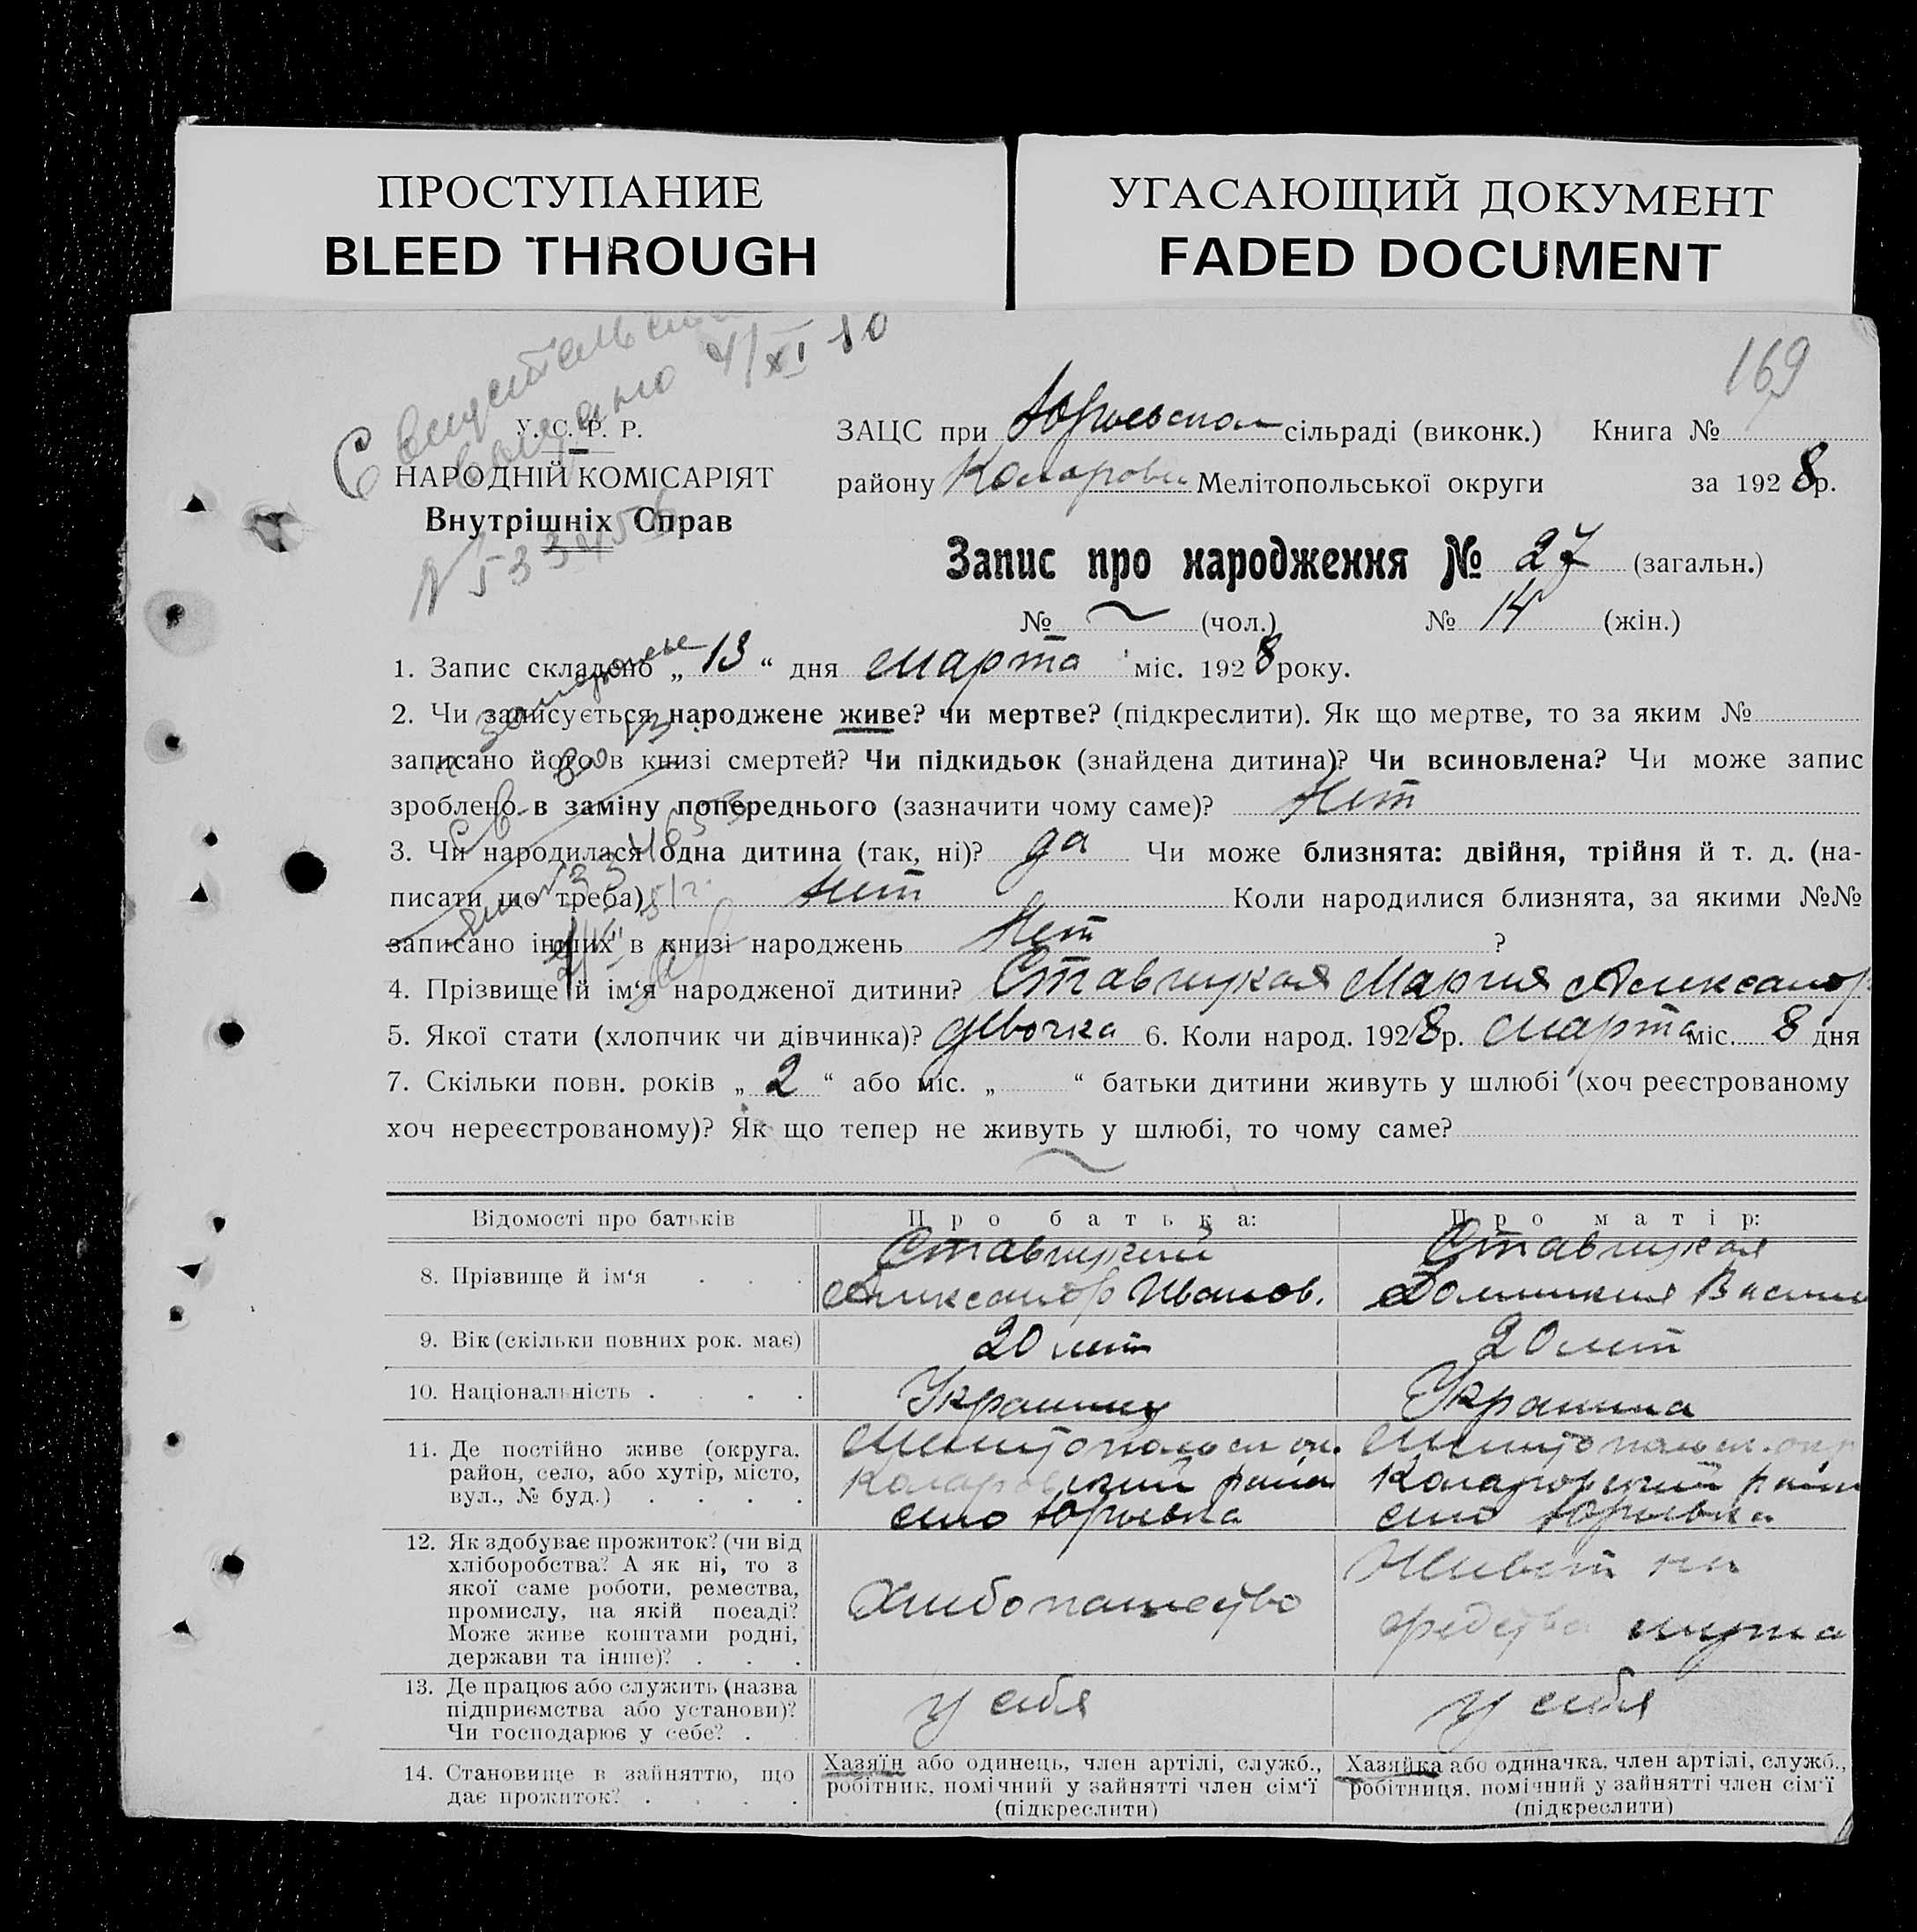 ПРОСТУПАНИЕ
BLEED THROUGH
УГАСАЮЩИЙ ДОКУМЕНТ
FADED DOCUMENT
169
У. С. Р. Р.
НАРОДНІЙ КОМІСАРІЯТ
Внутрішніх Справ
ЗАЦС при Юрьевском сільраді (виконк.) Книга №
району Коларовск Мелітопольської округи за 1928 р.
Запис про народження № 27 (загальн.)
№ ~ (чол.) № 14 (жін.)
1. Запис складено „ 13 “ дня марта міс. 1928 року.
2. Чи записується народжене живе? чи мертве? (підкреслити). Як що мертве, то за яким №
записано його в книзі смертей? Чи підкидьок (знайдена дитина)? Чи всиновлена? Чи може запис
зроблено в заміну попереднього (зазначити чому саме)? Нет
3. Чи народилася одна дитина (так, ні)? да Чи може близнята: двійня, трійня й т. д. (на-
писати що треба) Нет Коли народилися близнята, за якими №№
записано інших в книзі народжень Нет ?
4. Прізвище й ім‘я народженої дитини? Ставицкая Мария Александр
5. Якої стати (хлопчик чи дівчинка)? девочка 6. Коли народ. 1928 р. марта міс. 8 дня
7. Скільки повн. років „ 2 “ або міс. „ “ батьки дитини живуть у шлюбі (хоч реєстрованому
хоч нереєстрованому)? Як що тепер не живуть у шлюбі, то чому саме?
~
Відомості про батьків Про батька: Про матір:
8. Прізвище й ім‘я . . . Ставицкий Александр Иванов. Ставицкая Домникия Васили
9. Вік (скільки повних рок. має) 20 лет 20 лет
10. Національність . . . . Украинец Украинка
11. Де постійно живе (округа, район, село, або хутір, місто, вул., № буд.) . . . .
Мелитопольск ок. Коларовский район село Юрьевка
Мелитопольск. окр Коларовский район село Юрьевка
12. Як здобуває прожиток? (чи від хліборобства? А як ні, то з якої саме роботи, ремества, промислу, на якій посаді? Може живе коштами родні, держави та інше)? . . .
Хлебопашество
Живет на средства мужа
13. Де працює або служить (назва підприємства або установи)? Чи господарює у себе? .
у себя
у себя
14. Становище в зайняттю, що дає прожиток? . . . .
Хазяїн або одинець, член артілі, служб., робітник, помічний у зайнятті член сім‘ї (підкреслити)
Хазяйка або одиначка, член артілі, служб., робітниця, помічний у зайнятті член сім‘ї (підкреслити)